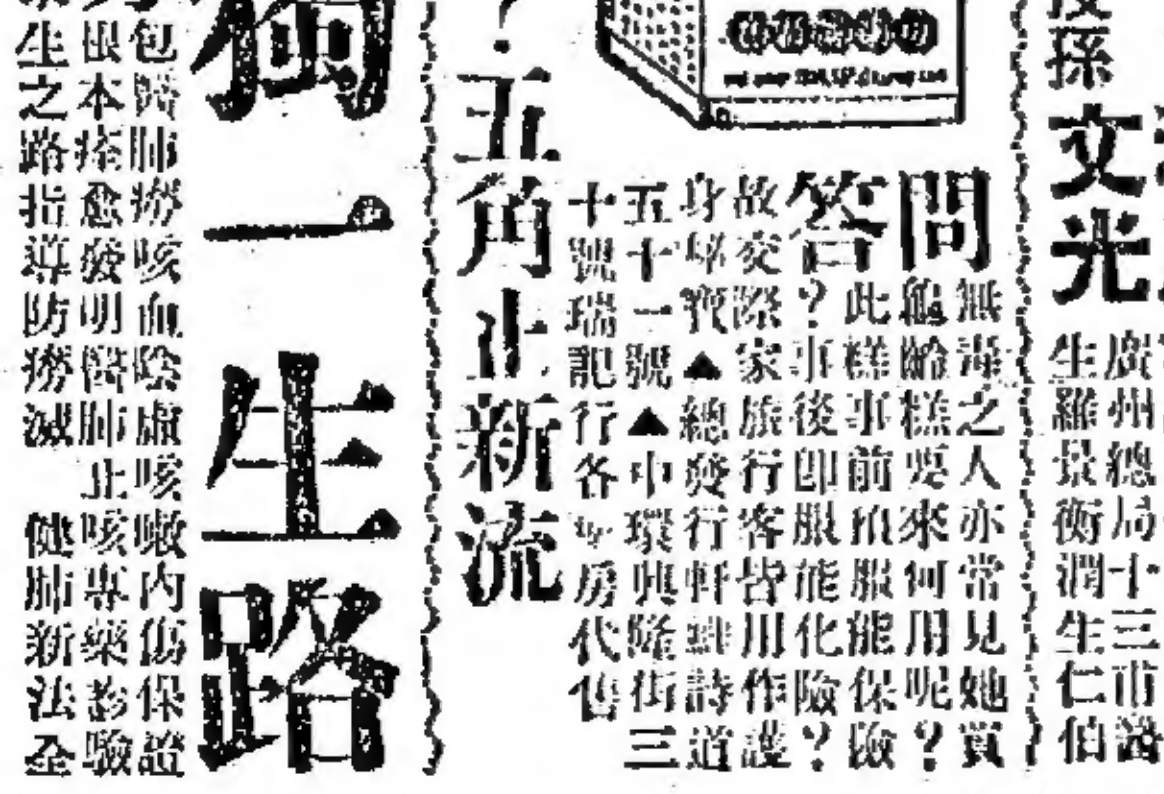 文光
廣州總局十三甫
生羅景衡潤生仁伯
孫
問
無毒之人亦常見她買
龜齡糕要來何用呢？
答
此糕事前服能保險
？事後即服能化險？
故交際家旅行客皆用作護
身寶▲總發行軒詩道
五十一號▲中環興隆街三
十號瑞記行各房代售
？五角止新流
獨一生路
包醫肺癆咳血陰虛咳嗽內傷保證
根本痊愈發明醫肺止咳專藥驗
生之路指導防癆滅
健肺新法全